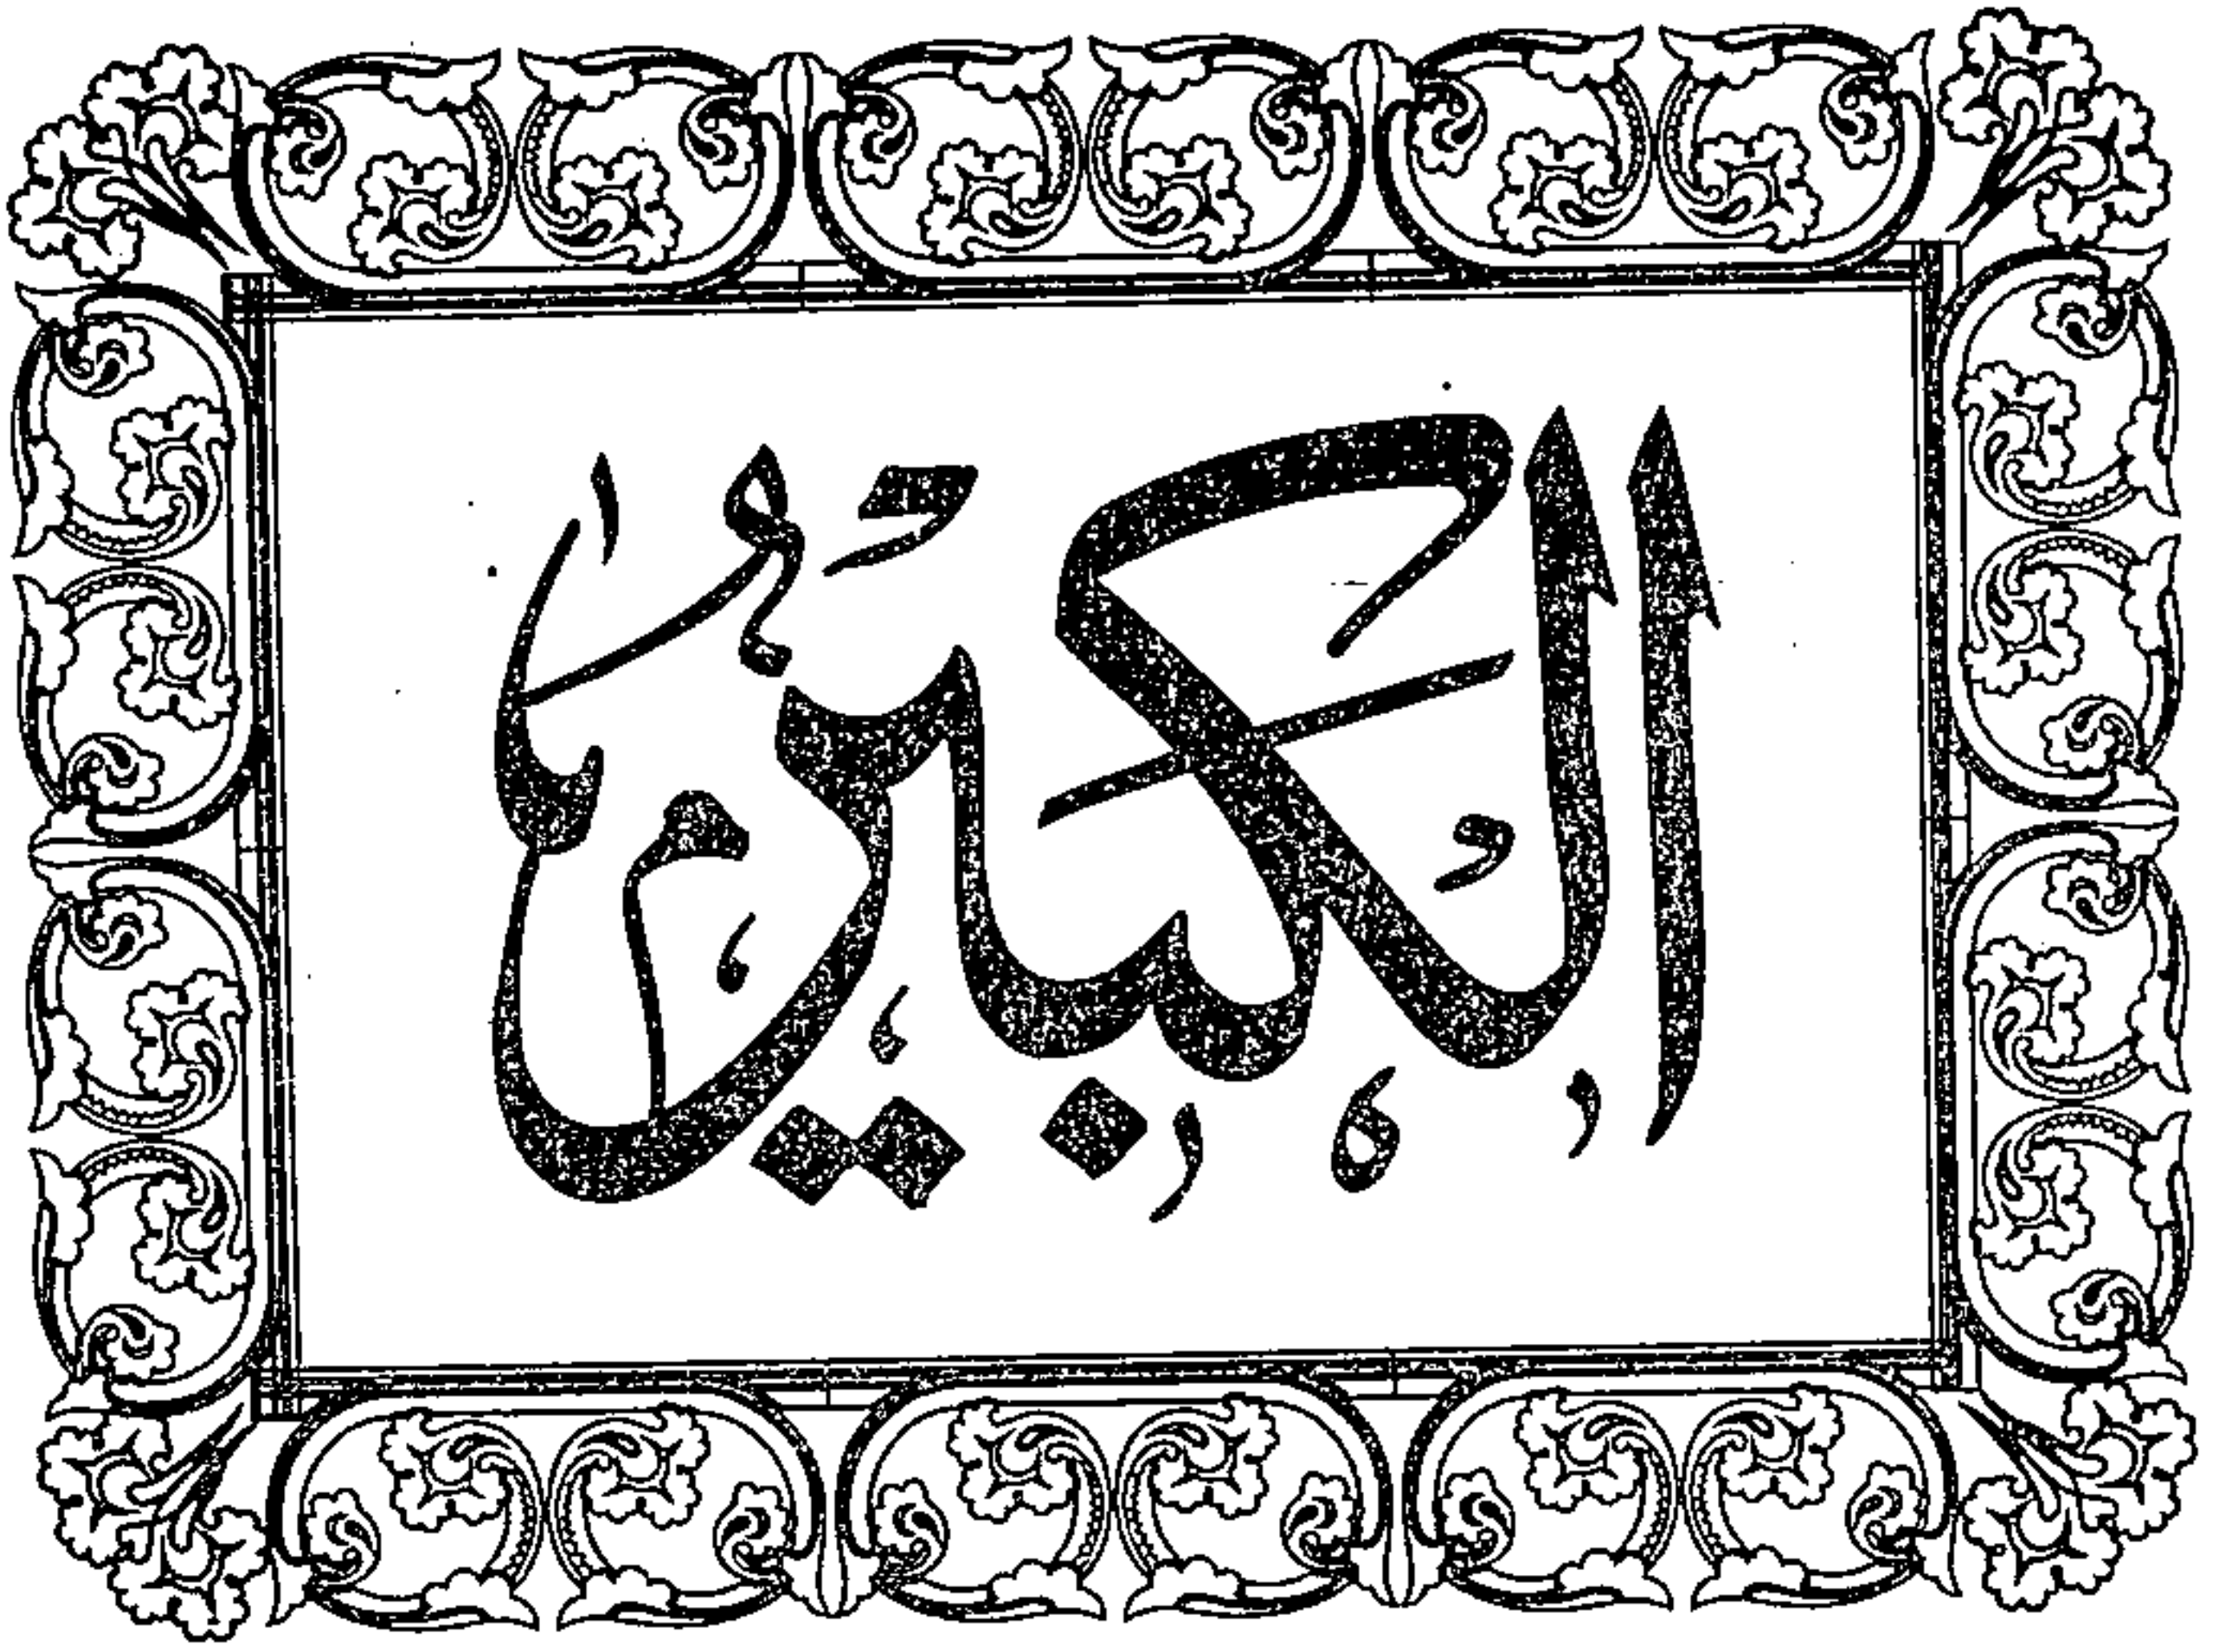 الكبير